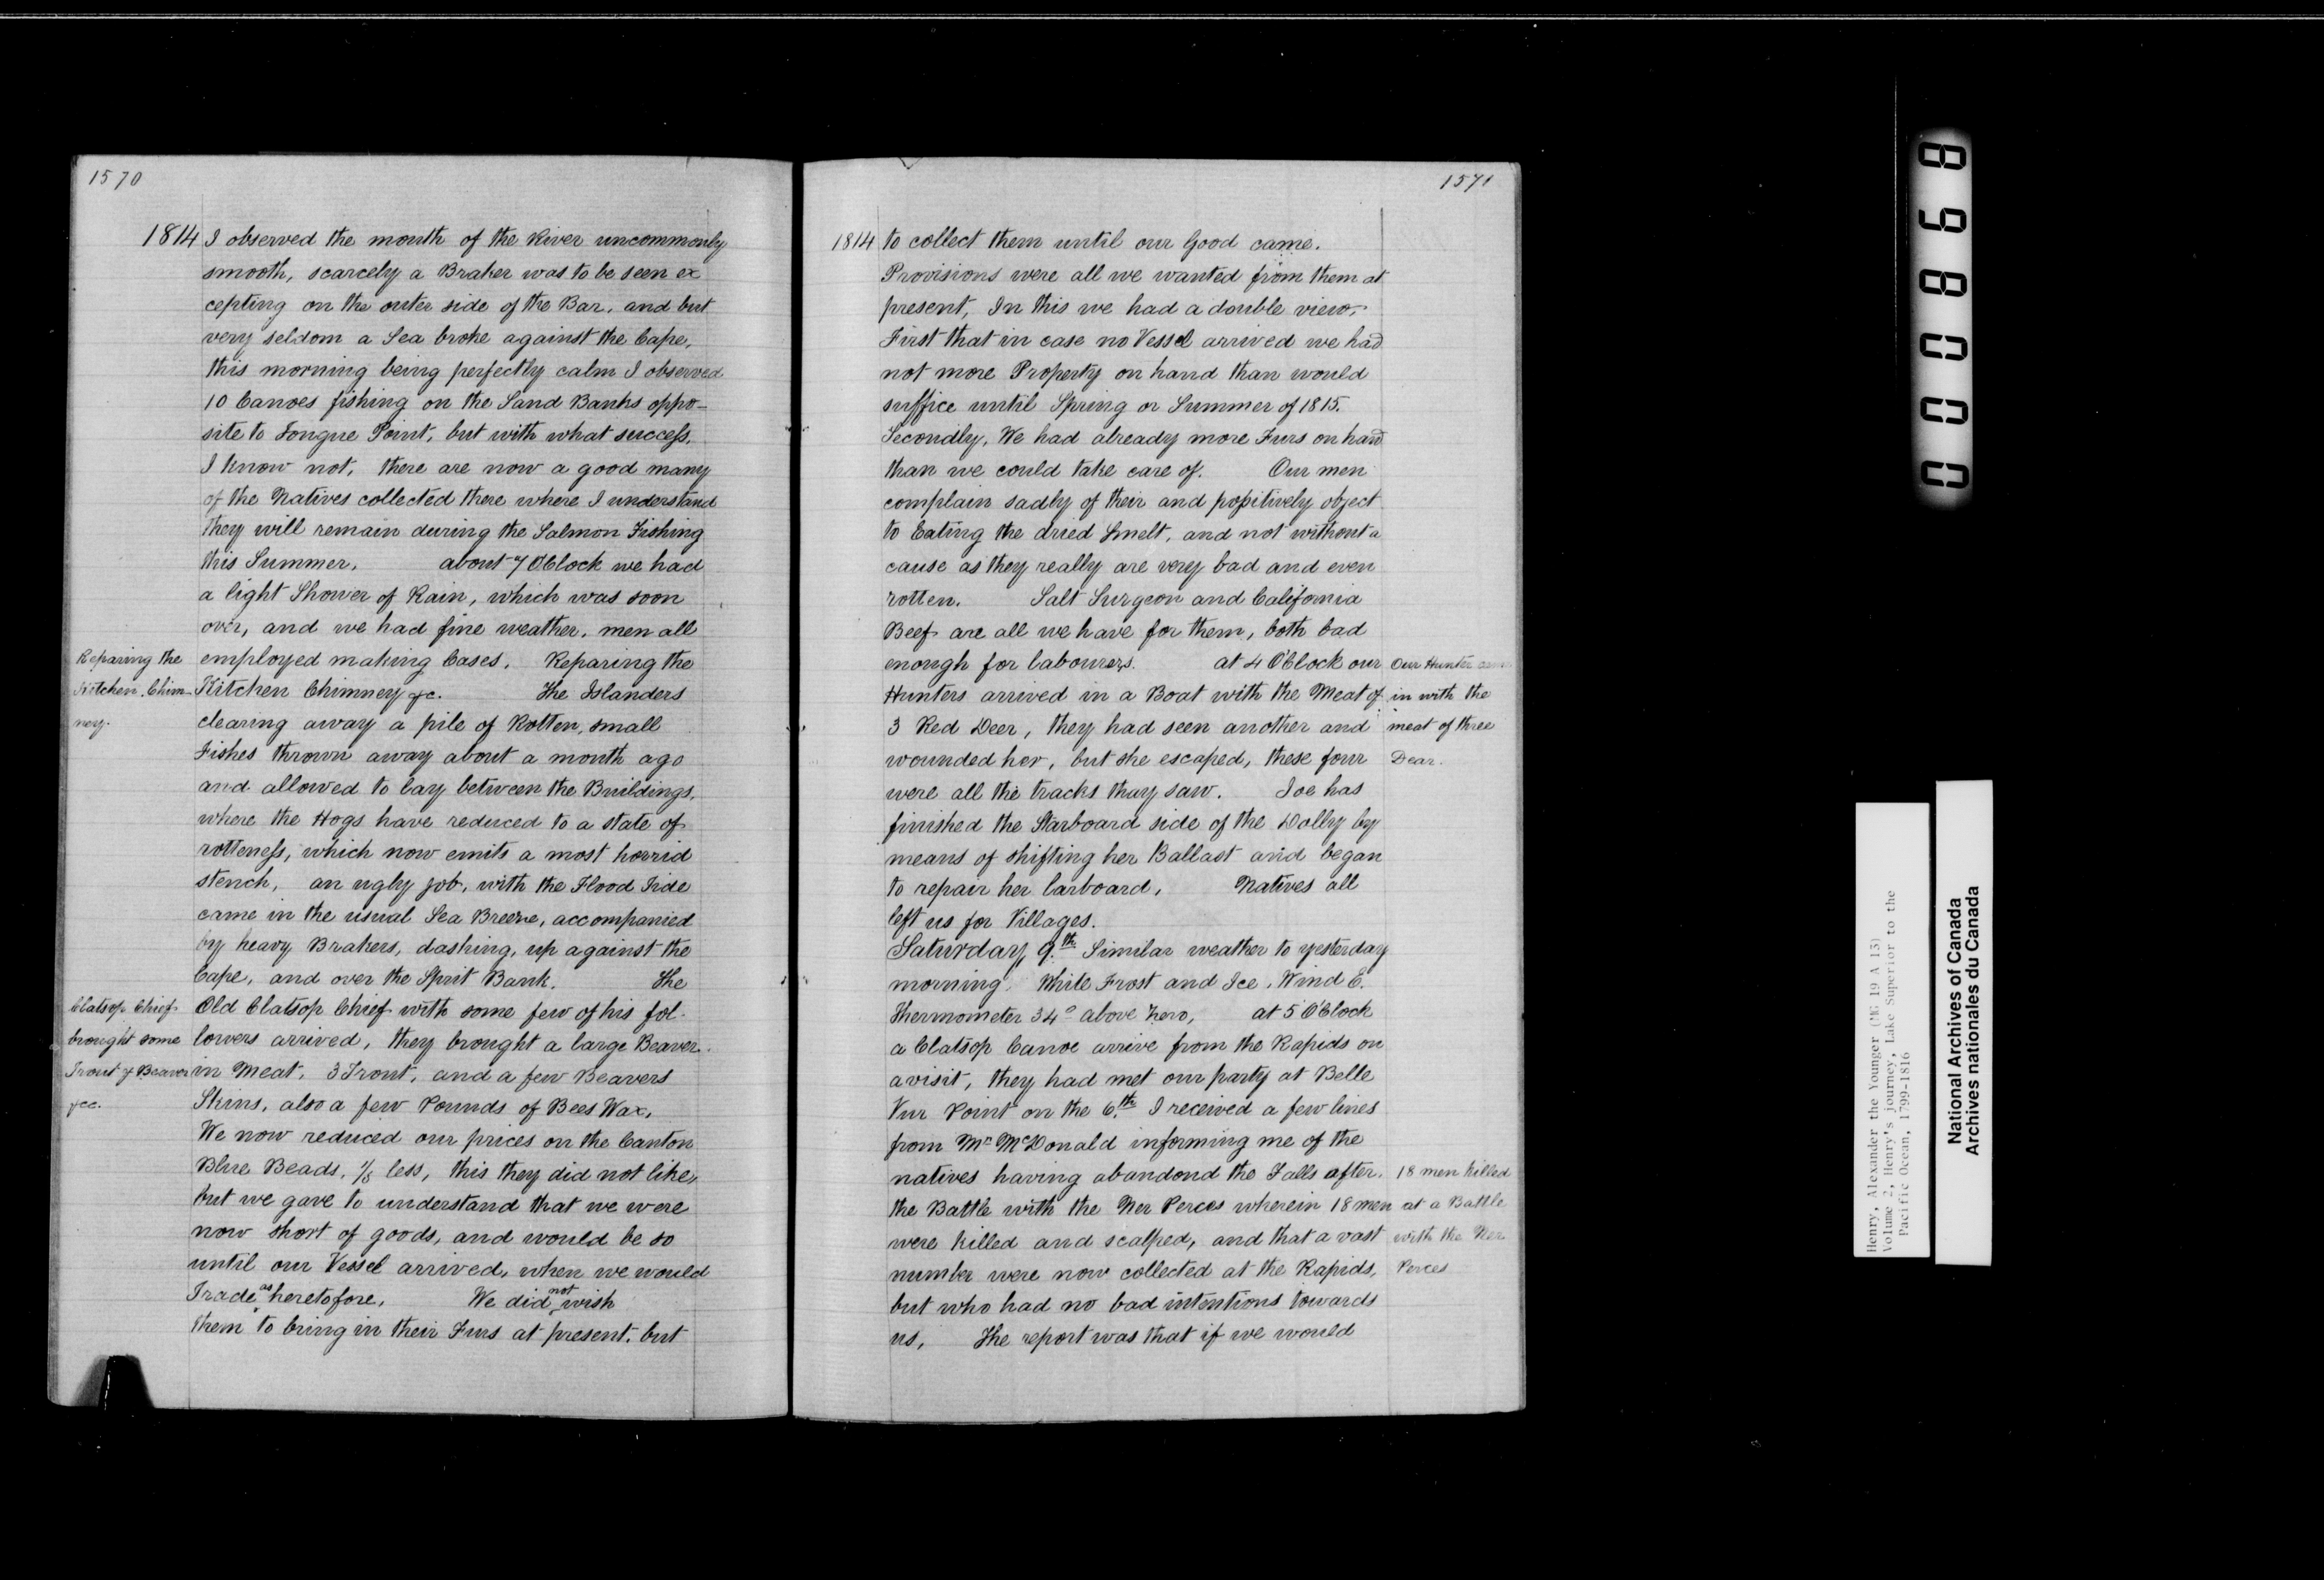 1570
1814 I observed the mouth of the River uncommonly
smooth, scarcely a Braker was to be seen ex
cepting on the outer side of the Bar, and but
very seldom a Sea broke against the Cape,
this morning being perfectly calm I observed
10 Canoes fishing on the Sand Banks oppo-
site to Tongue Point, but with what success,
I know not, there are now a good many
of the Natives collected there where I understand
they will remain during the Salmon Fishing
this Summer. about 7 OClock we had
a light Shower of Rain, which was soon
over, and we had fine weather, men all
employed making Cases. Reparing the
Kitchen Chimney &c. The Islanders
clearing away a pile of Rotten, small
Fishes thrown away about a month ago
and allowed to lay between the Buildings,
where the Hogs have reduced to a state of
rotteness, which now emits a most horrid
stench, an ugly job, with the Flood Tide
came in the usual Sea Breeze, accompanied
by heavy Brakers, dashing, up against the
Cape, and over the Sprit Bank. The
Old Clatsop Chief with some few of his fol-
lowers arrived, they brought a large Beaver
in Meat, 3 Trout, and a few Beavers
Skins, also a few Pounds of Bees Wax,
We now reduced our prices on the Canton
Blue Beads, 1/3 less, this they did not like,
but we gave to understand that we were
now short of goods, and would be so
until our Vessel arrived, when we would
Trade as heretofore, We did not wish
them to bring in their Furs at present, but
Reparing the
Kitchen Chim-
ney.
Clatsop Chief
brought some
Trout & Beaver
&c.
1571
1814 to collect them until our Good came.
Provisions were all we wanted from them at
present, In this we had a double view,
First that in case no Vessel arrived we had
not more Property on hand than would
suffice until Spring or Summer of 1815.
Secondly, We had already more Furs on hand
than we could take care of. Our men
complain sadly of their and positively object
to Eating the dried Smelt, and not without a
cause as they really are very bad and even
rotten. Salt Surgeon and California
Beef are all we have for them, both bad
enough for labourers. at 4 OClock our
Hunters arrived in a Boat with the Meat of
3 Red Deer, they had seen another and
wounded her, but she escaped, these four
were all the tracks thay saw. Joe has
finished the Starboard side of the Dolly by
means of shifting her Ballast and began
to repair her larboard, Natives all
left us for Villages.
Saturday 9th Similar weather to yesterday
morning. While Frost and Ice, Wind E.
Thermometer 34° above Zero, at 5 OClock
a Clatsop Canoe arrive from the Rapids on
a visit, they had met our party at Belle
Vur Point on the 6th I received a few lines
from Mr McDonald informing me of the
natives having abandond the Falls after
the Battle with the Ner Perces wherein 18 men
were killed and scalped, and that a vast
number were now collected at the Rapids,
but who had no bad intentions towards
us, The report was that if we would
Our Hunter came
in with the
meat of three
Dear.
18 men killed
at a Battle
with the Ner
Perces
000868
Henry, Alexander the Younger (MG 19 A 13)
Volume 2, Henry's journey, Lake Superior to the
Pacific Ocean, 1799-1816
National Archives of Canada
Archives nationales du Canada